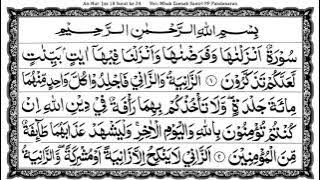 An Nur Juz 18 Surat ke 24
بِسْمِ اللهِ الرَّحْمٰنِ الرَّحِيْمِ
سُوْرَةٌ اَنْزَلْنٰهَا وَفَرَضْنٰهَا وَاَنْزَلْنَا فِيْهَآ اٰيٰتٍۢ بَيِّنٰتٍ
لَّعَلَّكُمْ تَذَكَّرُوْنَ ۝١ اَلزَّانِيَةُ وَالزَّانِيْ فَاجْلِدُوْا كُلَّ وَاحِدٍ مِّنْهُمَا
مِائَةَ جَلْدَةٍ ۖ وَّلَا تَأْخُذْكُمْ بِهِمَا رَأْفَةٌ فِيْ دِيْنِ اللهِ اِنْ
كُنْتُمْ تُؤْمِنُوْنَ بِاللهِ وَالْيَوْمِ الْاٰخِرِ ۚ وَلْيَشْهَدْ عَذَابَهُمَا طَآئِفَةٌ
مِّنَ الْمُؤْمِنِيْنَ ۝٢ اَلزَّانِيْ لَا يَنْكِحُ اِلَّا زَانِيَةً اَوْ مُشْرِكَةً ۖ وَّالزَّانِيَةُ